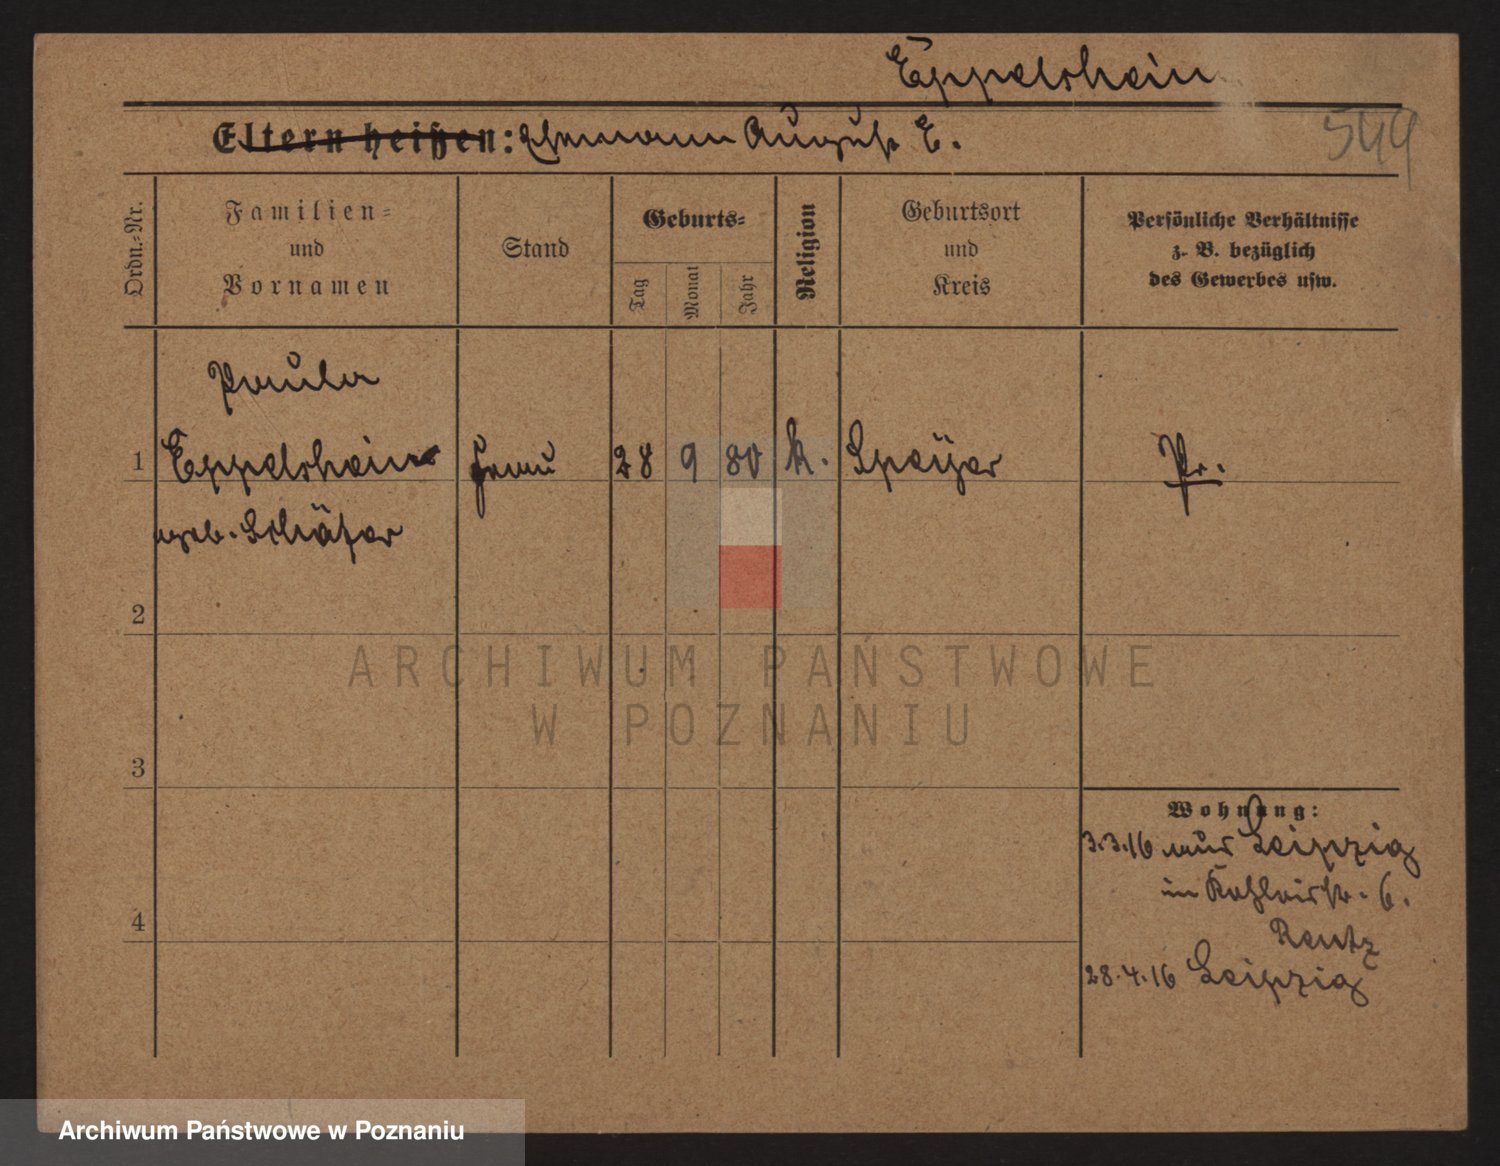 Eppelshein
544
Eltern heißen: Ehemann August E.
Ordn.-Nr.
Familien- und Vornamen
Stand
Geburts-
Tag
Monat
Jahr
Religion
Geburtsort und Kreis
Persönliche Verhältnisse z. B. bezüglich des Gewerbes usw.
Paula
1 Eppelshein Frau 28 9 80 k. Speÿer Pr.
geb. Schäfer
2
ARCHIWUM PAŃSTWOWE
W POZNANIU
3
Wohnung:
3.3.16 aus Leipzig
in 6.
4
Rentz
28.4.16 Leipzig
Archiwum Państwowe w Poznaniu